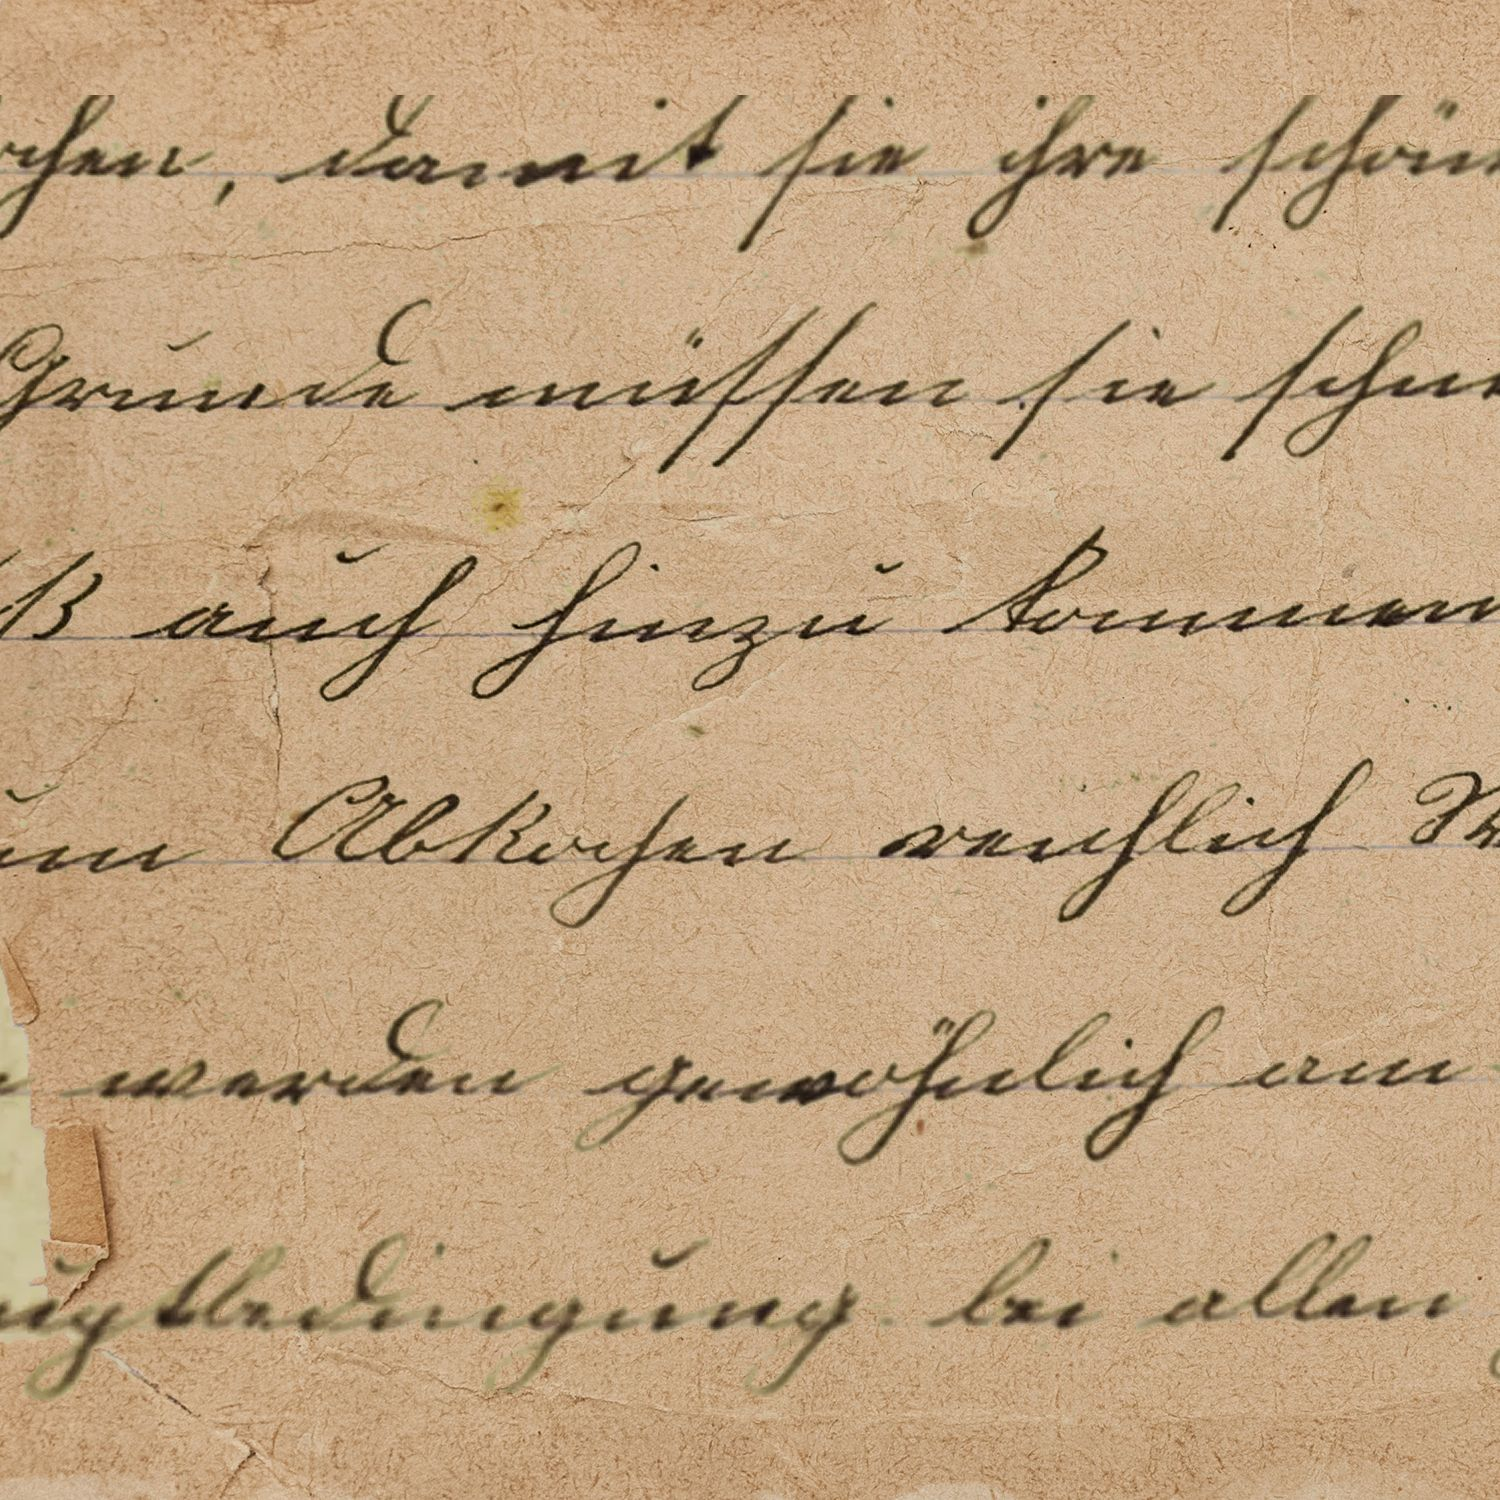 ochen, damit sie ihre schön
Grunde müssen sie schn
ß auch hinzu kommen
um Abkochen reichlich W
werden gewöhnlich am
uptbedingung bei allen